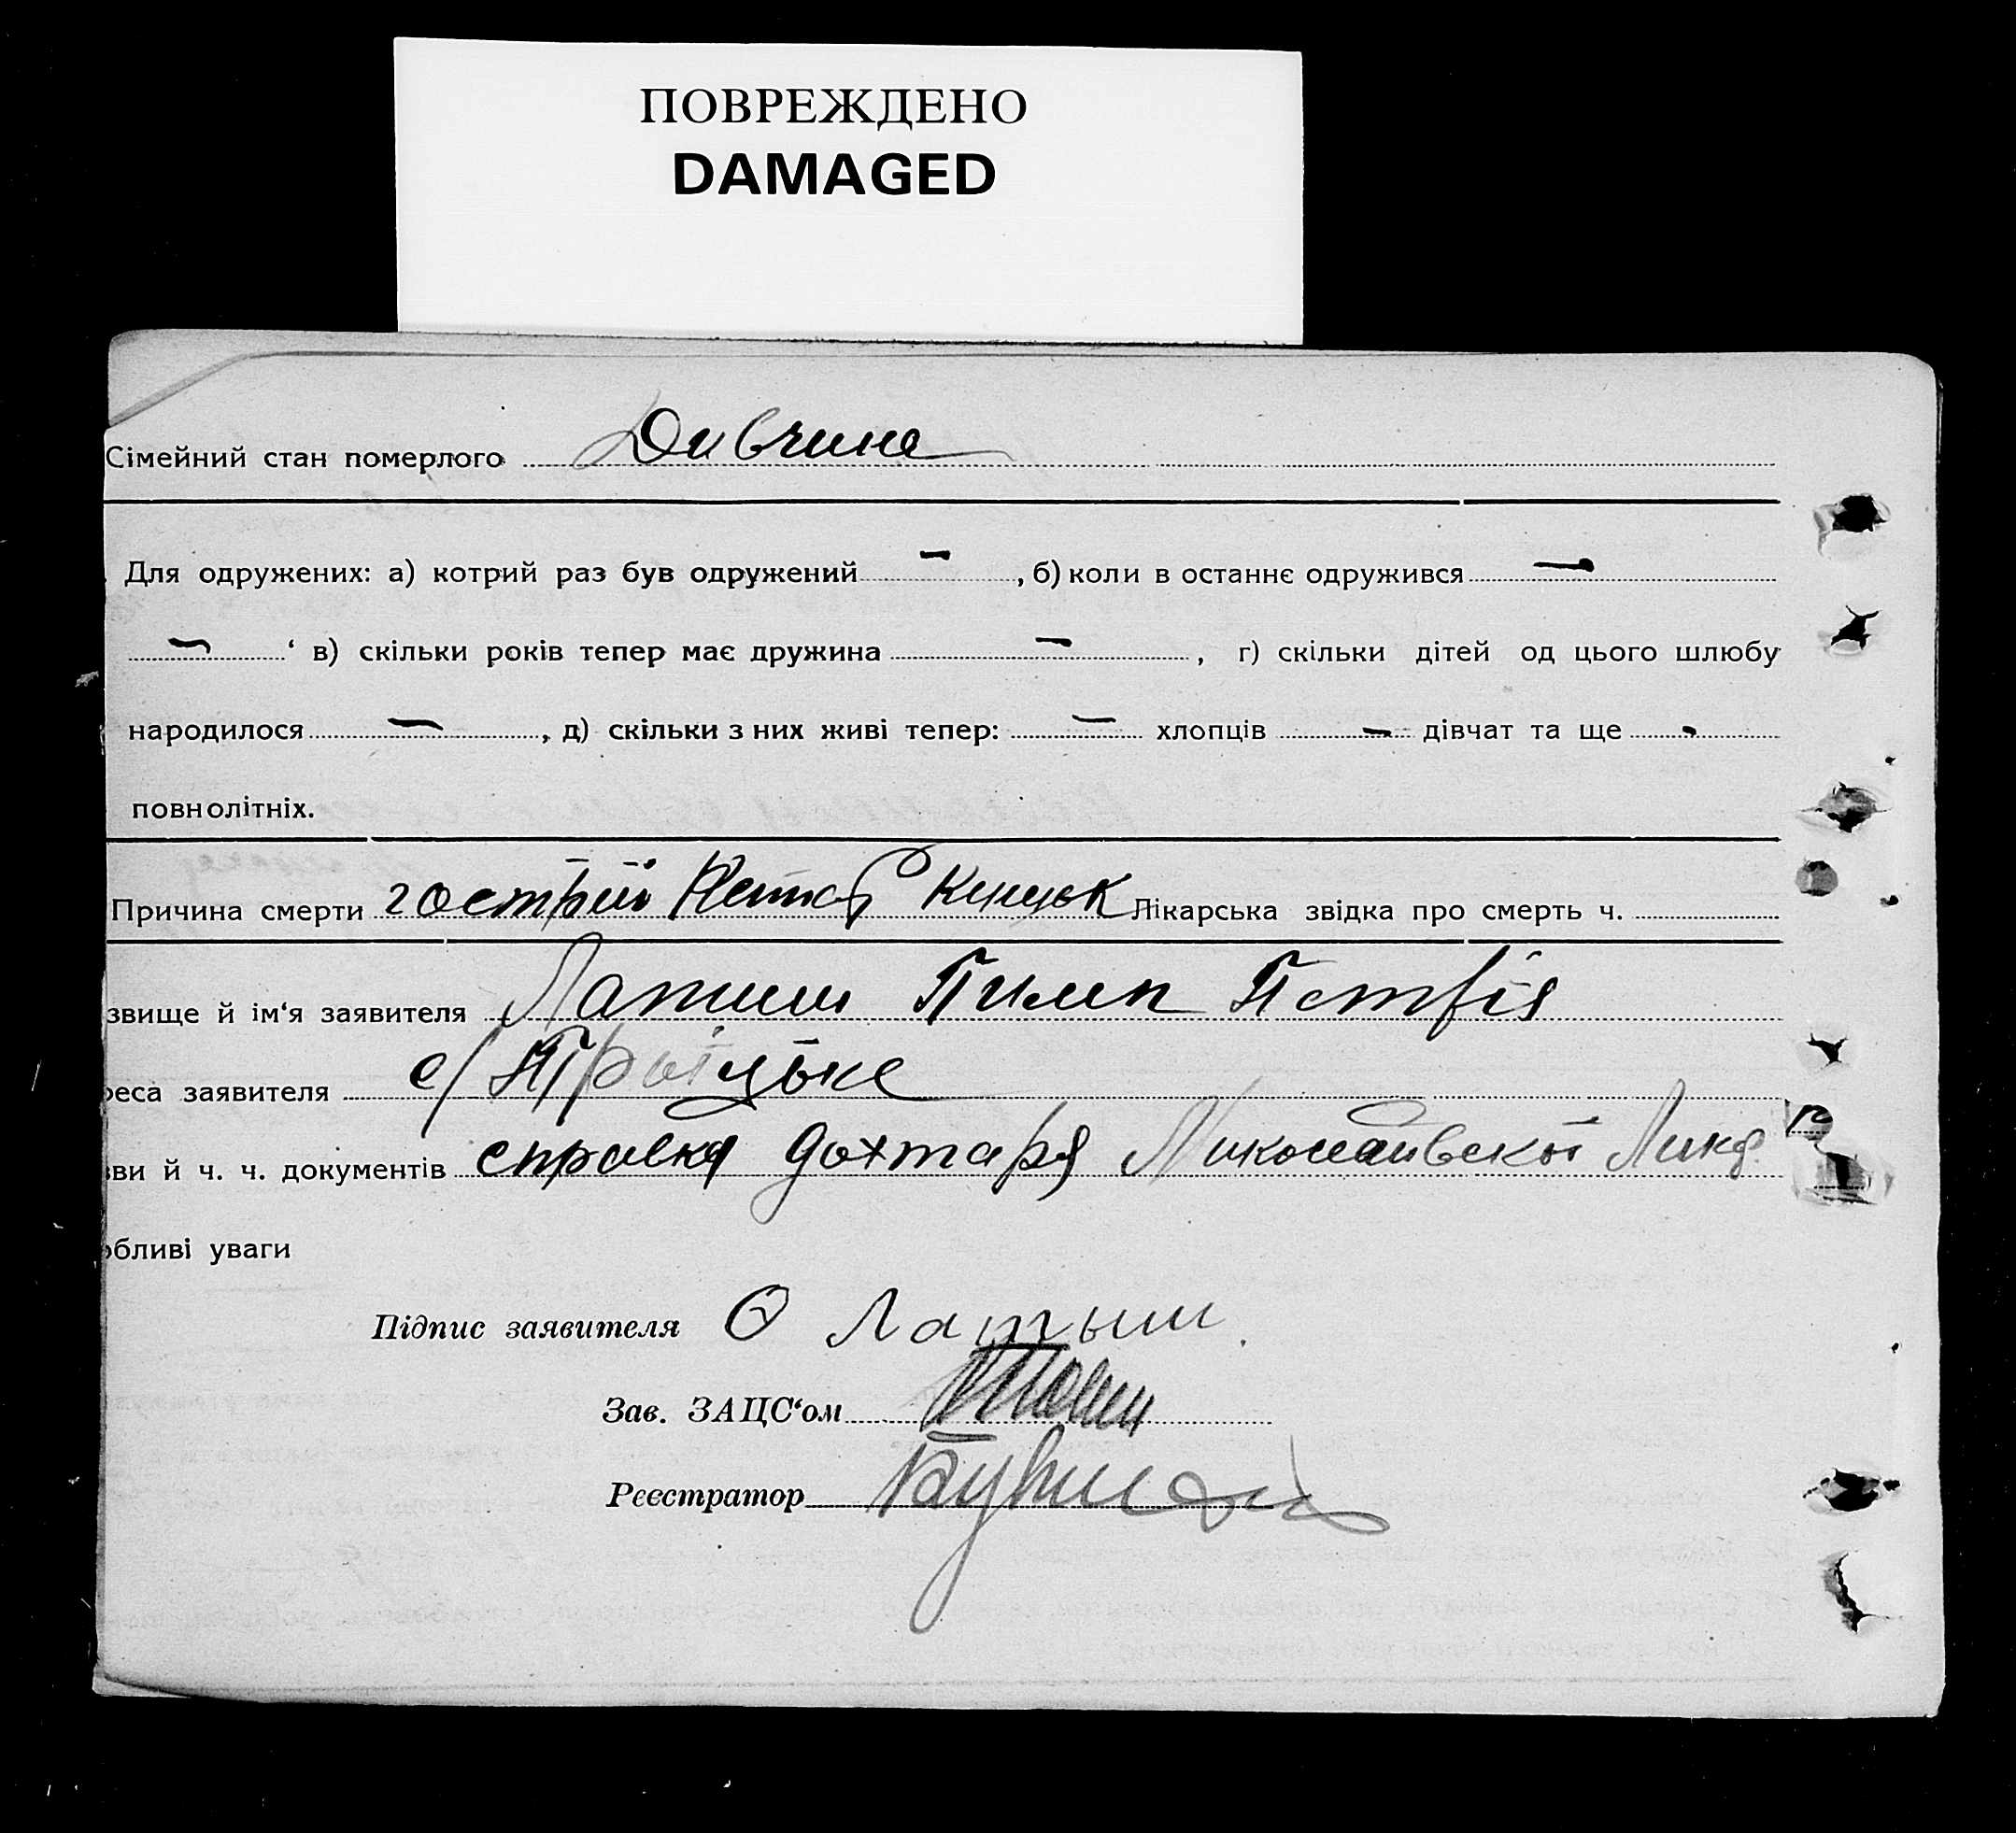 ПОВРЕЖДЕНО
DAMAGED
Сімейний стан померлого Дивчина
Для одружених: а) котрий раз був одружений — , б) коли в останнє одружився —
— ‘ в) скільки років тепер має дружина — , г) скільки дітей од цього шлюбу
народилося — , д) скільки з них живі тепер: — хлопців — дівчат та ще -
повнолітніх.
Причина смерти гострий Катар Кишок Лікарська звідка про смерть ч.
звище й ім‘я заявителя Латиш Пилип
реса заявителя с/ Троїцьке
ви й ч. ч. документів справка дохтаря Миколаивскої
обливі уваги
Підпис заявителя О Латыш
Зав. ЗАЦС‘ом
Реєстратор